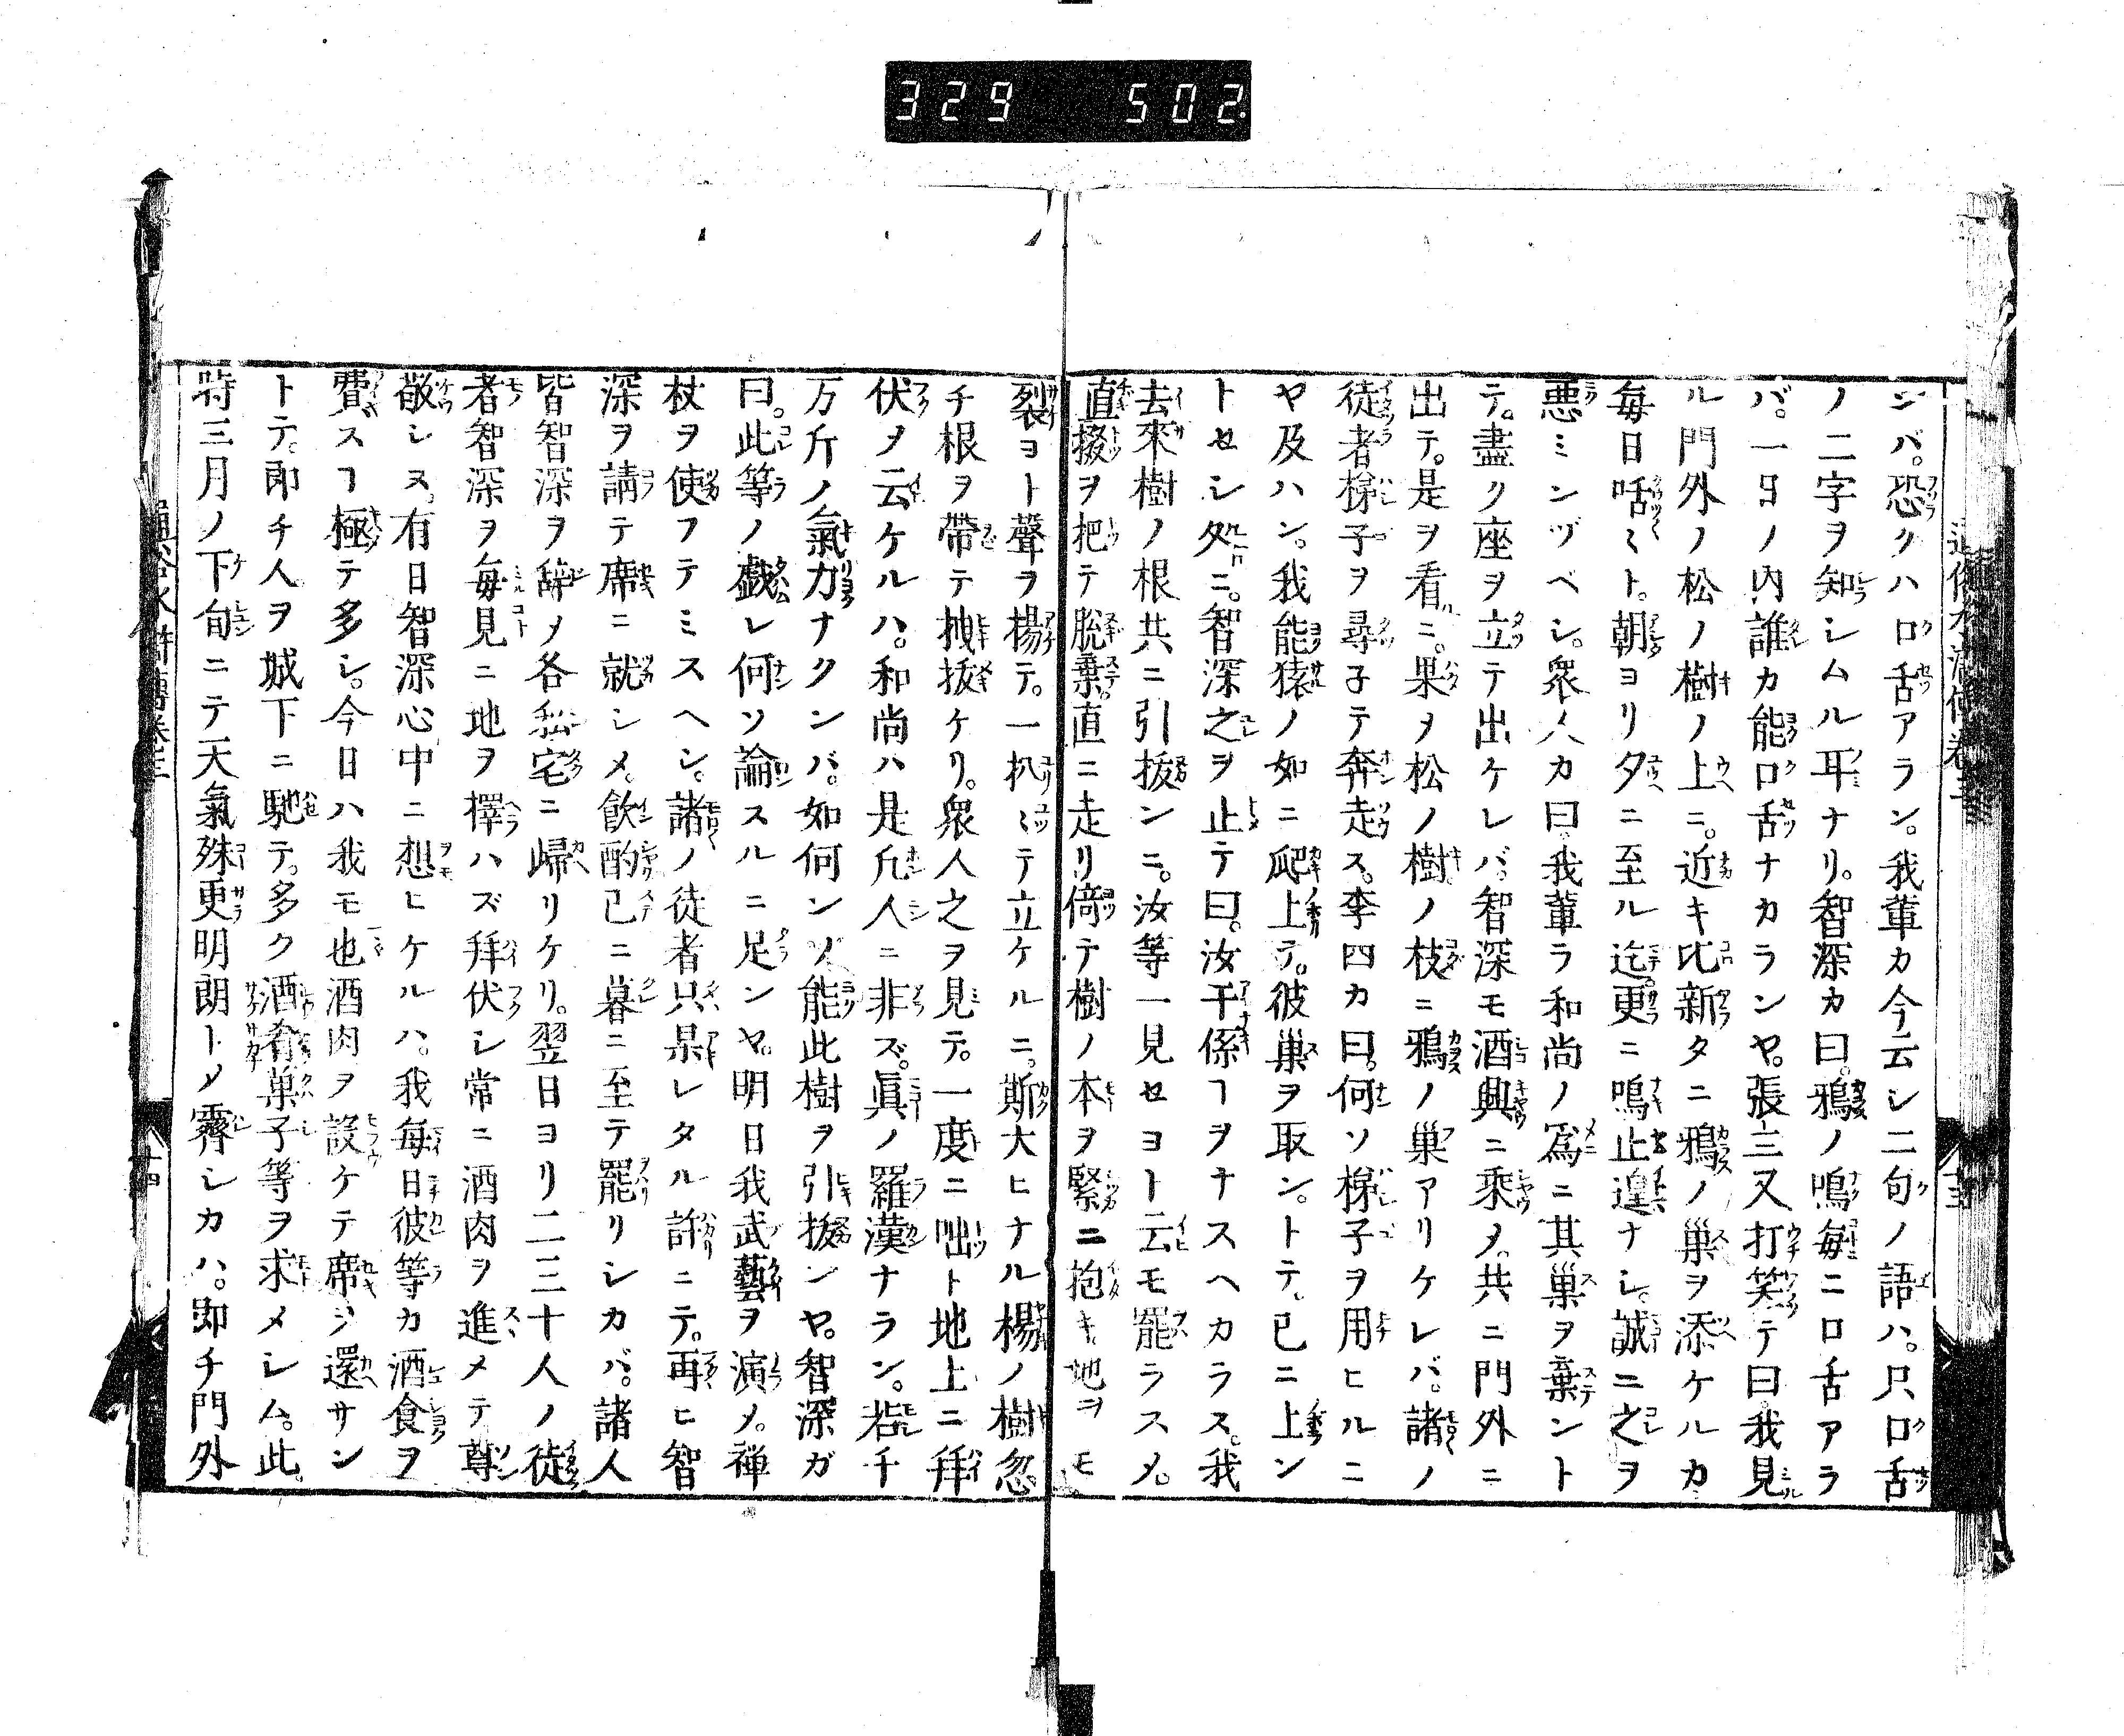 329 502
ンバ。恐クハ口舌アラン。我輩カ今云シ二句ノ語ハ。只口舌
ノ二字ヲ知シムル耳ナリ。智深カ曰。鴉ノ鳴毎ニ口舌アラ
バ。一日ノ内誰カ能口舌ナカランヤ。張三又打笑テ曰。我見
ル門外ノ松ノ樹ノ上ニ。近キ比新タニ鴉ノ巣ヲ添ケルカ
毎日咶〻ト。朝ヨリ夕ニ至ル迄。更ニ鳴止遑ナシ。誠ニ之ヲ
悪ミンヅベシ。衆人カ曰我輩ラ和尚ノ爲ニ其巣ヲ棄ント
テ。盡ク座ヲ立テ出ケレバ。智深モ酒興ニ乘メ。共ニ門外ニ
出テ。是ヲ看ニ。果ヲ松ノ樹ノ枝ニ鴉ノ巣アリケレバ。諸ノ
徒者梯子ヲ尋子テ奔走ス。李四カ曰。何ソ梯子ヲ用ヒルニ
ヤ及ハン。我能猿ノ如ニ爬上テ。彼巣ヲ取ン。トテ。已ニ上ン
トセシ処ニ。智深之ヲ止テ曰。汝干係ヿヲナスヘカラス。我
去來樹ノ根共ニ引抜ンニ。汝等一見セヨト云モ罷ラスメ。
直掇ヲ把テ脱棄。直ニ走リ倚テ樹ノ本ヲ緊ニ抱キ地ヲモ
裂ヨト聲ヲ楊テ。一扒〻テ立ケルニ。斯大ヒナル楊ノ樹忽
チ根ヲ帶テ拽抜ケリ。衆人之ヲ見テ。一度ニ咄ト地上ニ拜
伏メ云ケルハ。和尚ハ是凢人ニ非ズ。眞ノ羅漢ナラン。若千
万斤ノ氣力ナクンバ。如何ンソ能此樹ヲ引抜ンヤ。智深ガ
曰。此等ノ戯レ何ソ論スルニ足ンヤ。明日我武藝ヲ演メ。禅
杖ヲ使フテミスヘシ。諸ノ徒者只呆レタル許ニテ。再ヒ智
深ヲ請テ席ニ就シメ。飲酌已ニ暮ニ至テ罷リシカバ。諸人
皆智深ヲ辞メ各私宅ニ歸リケリ。翌日ヨリ二三十人ノ徒
者智深ヲ毎見ニ地ヲ擇ハズ拜伏シ常ニ酒肉ヲ進メテ尊
敬シヌ。有日智深心中ニ想ヒケルハ。我毎日彼等カ酒食ヲ
費スヿ極テ多シ。今日ハ我モ也酒肉ヲ設ケテ席ヲ還サン
トテ。即チ人ヲ城下ニ馳テ。多ク酒肴菓子等ヲ求メシム。此
時三月ノ下旬ニテ天氣殊更明朗トメ霽シカハ。即チ門外